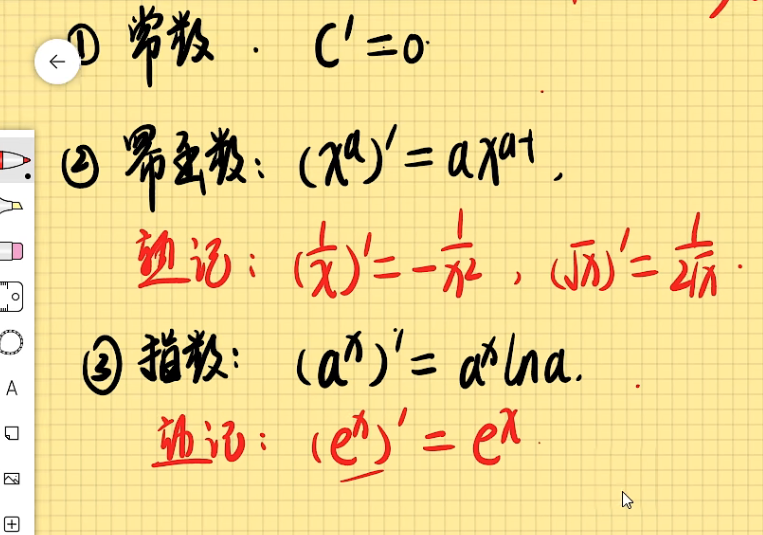 ① 常数. C'=0.
② 幂函数: (x^a)'=ax^{a-1},
熟记: (1/x)'=-1/x², (√x)'=1/(2√x).
③ 指数: (a^x)'=a^x ln a.
熟记: (e^x)'=e^x
A